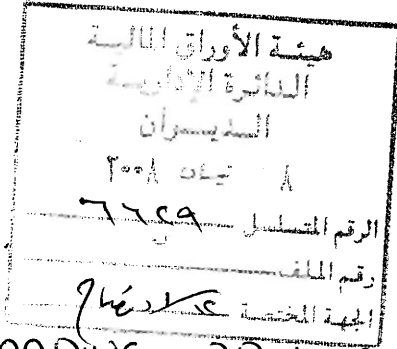 هيئة الأوراق المالية
الدائرة الإدارية
الديوان
٨ نيسان ٢٠٠٨
الرقم المتسلسل ٦٦٢٩
رقم الملف
الجهة المختصة